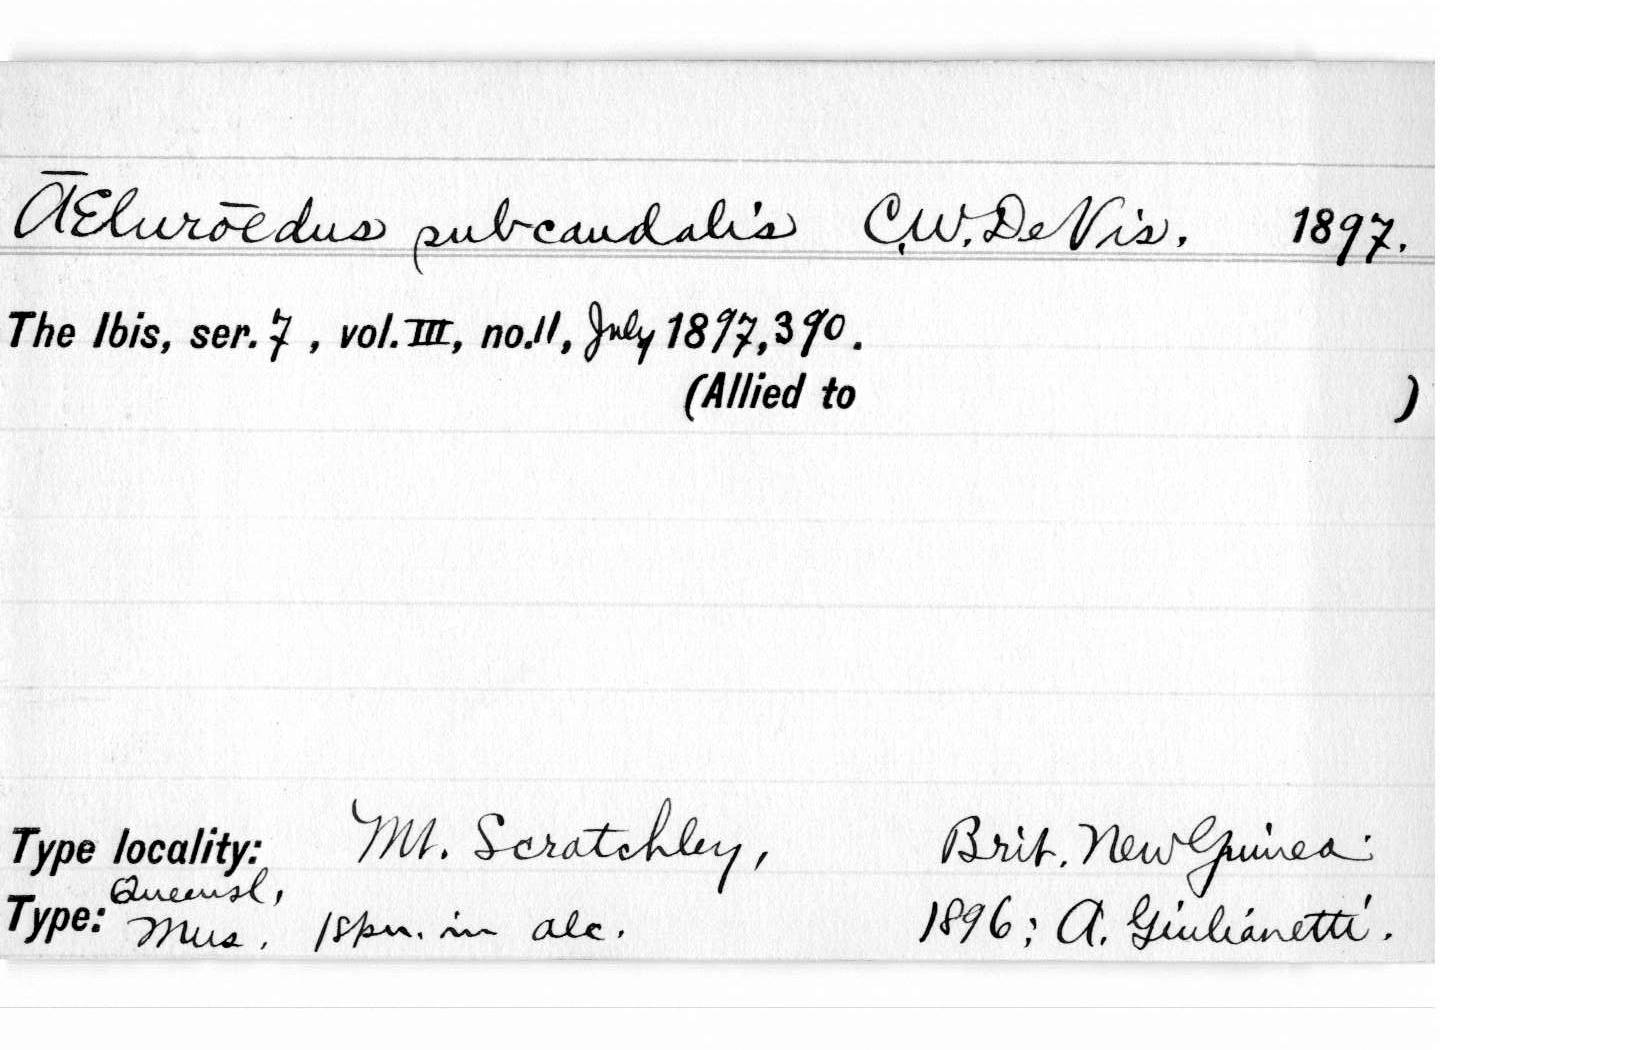 ĀEluroēdus subcaudalis C.W. De Vis. 1897.
The Ibis, ser. 7 , vol. III, no. 11, July 1897, 390.
(Allied to )
Type locality: Mt. Scratchley, Brit. New Guinea:
Type: Queensl, Mus. 1 spn. in alc. 1896; A. Giulianetti.